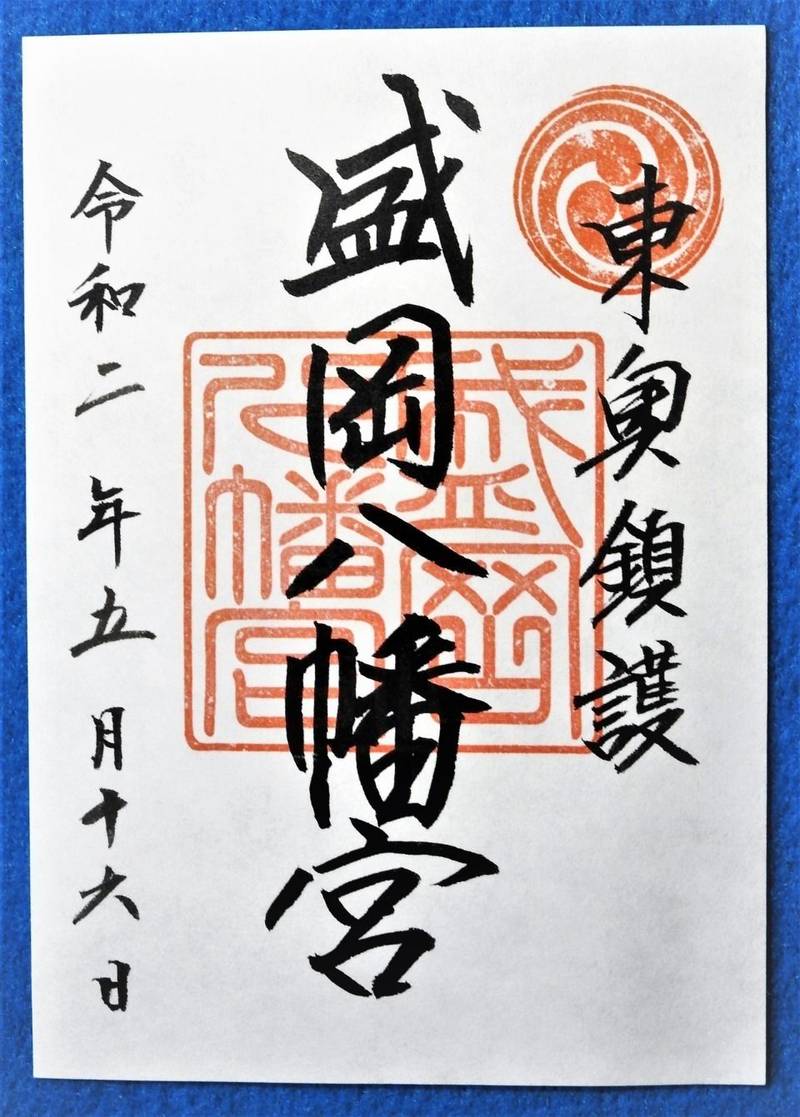 東奥鎮護
盛岡八幡宮
盛岡八幡宮
令和二年五月十六日